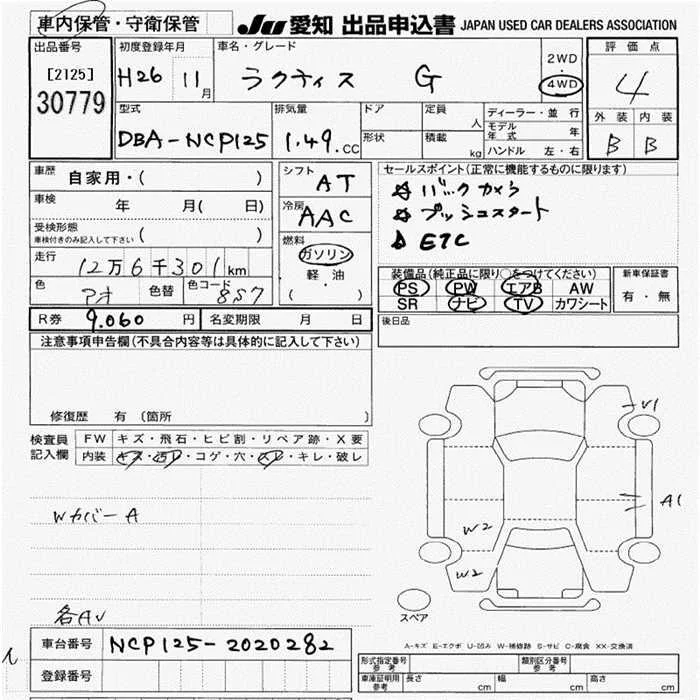 車内保管・守衛保管 JU 愛知 出品申込書 JAPAN USED CAR DEALERS ASSOCIATION
出品番号 初度登録年月 車名・グレード 2WD・4WD 評価点
[2125] 30779 H26 11月 ラクティス G 4
型式 排気量 ドア 定員 人 ディーラー・並行 外装 内装
DBA-NCP125 1.49.cc 形状 積載 kg モデル年式 年 B B
ハンドル 左・右
車歴 自家用・( ) シフト AT セールスポイント(正常に機能するものに限ります)
車検 年 月( 日) 冷房 AAC バックカメラ
受検形態 車検付きのみ記入して下さい ( ) プッシュスタート
走行 12万6千301km 燃料 ガソリン 軽・油 ( ) ETC
色 アオ 色替 色コード 8S7 装備品(純正品に限り○をつけてください) 新車保証書
PS PW エアB AW 有・無
SR ナビ TV カワシート
R券 9.060 円 名変期限 月 日 後日品
注意事項申告欄(不具合内容等は具体的に記入して下さい)
修復歴 有 (箇所 )
検査員記入欄 FW キズ・飛石・ヒビ割・リペア跡・X要
内装 キズ・汚レ・コゲ・穴・スレ・キレ・破レ
V1
A1
Wカバー A
W2
W2
各AV
スペア
A-キズ E-エクボ U-凹み W-補修跡 S-サビ C-腐食 XX-交換済
車台番号 NCP125-2020282
登録番号
形式指定番号 参考 類別区分番号 参考
車庫証明用 参考 長さ cm 幅 cm 高さ cm